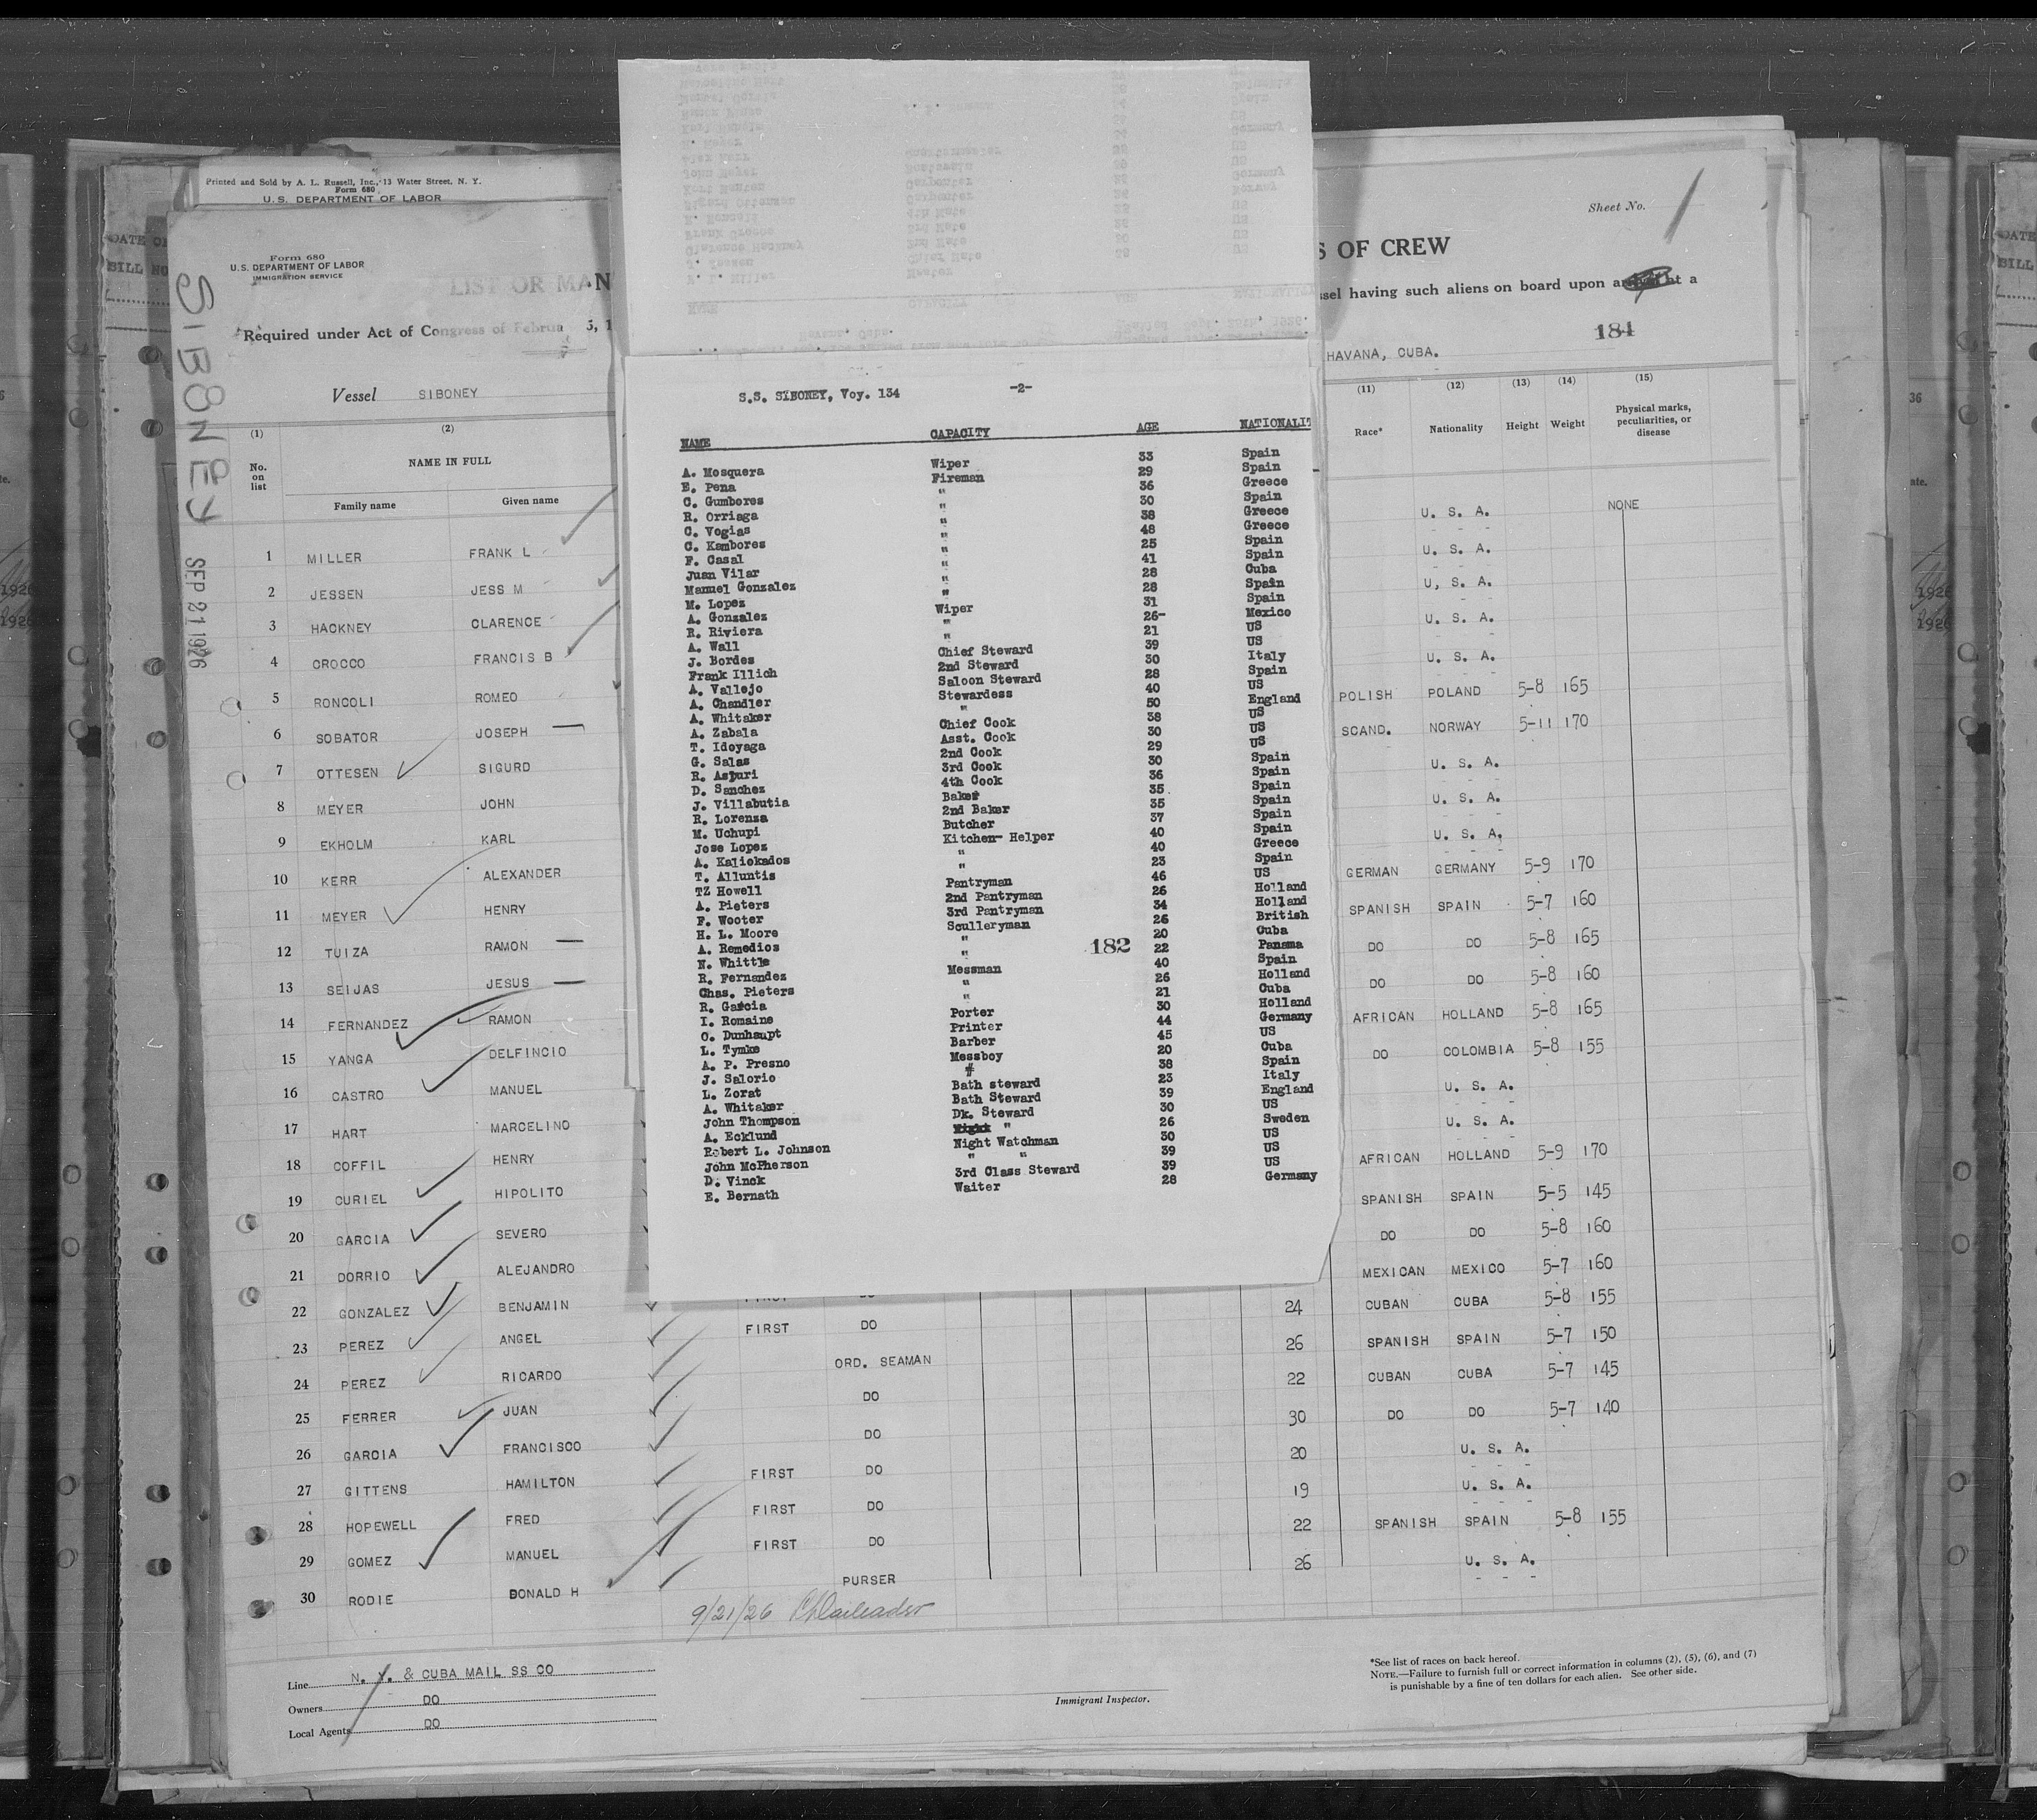 Printed and Sold by A. L. Russell, Inc., 13 Water Street, N. Y.
Form 680
U. S. DEPARTMENT OF LABOR
Form 680
U. S. DEPARTMENT OF LABOR
IMMIGRATION SERVICE
SIBONEY
SEP 21 1926
Sheet No. 1
LIST OR MAN
S OF CREW
Required under Act of Congress of Februa 5, 1
ssel having such aliens on board upon at a
184
Vessel SIBONEY
HAVANA, CUBA.
(1) (2) (11) (12) (13) (14) (15)
No. on list NAME IN FULL Race* Nationality Height Weight Physical marks, peculiarities, or disease
Family name Given name
1 MILLER FRANK L U. S. A. NONE
2 JESSEN JESS M U. S. A.
3 HACKNEY CLARENCE U, S. A.
4 CROCCO FRANCIS B U. S. A.
5 RONCOLI ROMEO U. S. A.
6 SOBATOR JOSEPH — POLISH POLAND 5-8 165
7 OTTESEN SIGURD SCAND. NORWAY 5-11 170
8 MEYER JOHN U. S. A.
9 EKHOLM KARL U. S. A.
10 KERR ALEXANDER U. S. A.
11 MEYER HENRY GERMAN GERMANY 5-9 170
12 TUIZA RAMON — SPANISH SPAIN 5-7 160
13 SEIJAS JESUS — DO DO 5-8 165
14 FERNANDEZ RAMON DO DO 5-8 160
15 YANGA DELFINCIO AFRICAN HOLLAND 5-8 165
16 CASTRO MANUEL DO COLOMBIA 5-8 155
17 HART MARCELINO U. S. A.
18 COFFIL HENRY U. S. A.
19 CURIEL HIPOLITO AFRICAN HOLLAND 5-9 170
20 GARCIA SEVERO SPANISH SPAIN 5-5 145
21 DORRIO ALEJANDRO DO DO 5-8 160
22 GONZALEZ BENJAMIN FIRST DO MEXICAN MEXICO 5-7 160
23 PEREZ ANGEL FIRST DO 24 CUBAN CUBA 5-8 155
24 PEREZ RICARDO ORD. SEAMAN 26 SPANISH SPAIN 5-7 150
25 FERRER JUAN DO 22 CUBAN CUBA 5-7 145
26 GARCIA FRANCISCO DO 30 DO DO 5-7 140
27 GITTENS HAMILTON FIRST DO 20 U. S. A.
28 HOPEWELL FRED FIRST DO 19 U. S. A.
29 GOMEZ MANUEL FIRST DO 22 SPANISH SPAIN 5-8 155
30 RODIE DONALD H PURSER 26 U. S. A.
9/21/26
Line N. Y. & CUBA MAIL SS CO
Owners DO
Local Agents DO
Immigrant Inspector.
*See list of races on back hereof.
NOTE.—Failure to furnish full or correct information in columns (2), (5), (6), and (7)
is punishable by a fine of ten dollars for each alien. See other side.
S.S. SIBONEY, Voy. 134 -2-
NAME CAPACITY AGE NATIONALIT
A. Mosquera Wiper 33 Spain
E. Pena Fireman 29 Spain
C. Gumbores " 36 Greece
R. Orriaga " 30 Spain
C. Vogias " 38 Greece
C. Kambores " 48 Greece
F. Casal " 25 Spain
Juan Vilar " 41 Spain
Manuel Gonzalez " 28 Cuba
M. Lopez " 28 Spain
A. Gonzalez Wiper 31 Spain
R. Riviera " 26- Mexico
A. Wall " 21 US
J. Bordes Chief Steward 39 US
Frank Illich 2nd Steward 30 Italy
A. Vallejo Saloon Steward 28 Spain
A. Chandler Stewardess 40 US
A. Whitaker " 50 England
A. Zabala Chief Cook 38 US
T. Idoyaga Asst. Cook 30 US
G. Salas 2nd Cook 29 US
R. Aspuri 3rd Cook 30 Spain
D. Sanchez 4th Cook 36 Spain
J. Villabutia Baker 35 Spain
R. Lorenza 2nd Baker 35 Spain
M. Uchupi Butcher 37 Spain
Jose Lopez Kitchen- Helper 40 Spain
A. Kaliokados " 40 Greece
T. Alluntis " 23 Spain
TZ Howell Pantryman 46 US
A. Pieters 2nd Pantryman 26 Holland
F. Wooter 3rd Pantryman 34 Holland
H. L. Moore Sculleryman 26 British
A. Remedios " 20 Cuba
N. Whittle " 182 22 Panama
R. Fernandez Messman 40 Spain
Chas. Pieters " 26 Holland
R. Garcia " 21 Cuba
I. Romaine Porter 30 Holland
O. Dunhaupt Printer 44 Germany
L. Tymke Barber 45 US
A. P. Presno Messboy 20 Cuba
J. Salorio " 38 Spain
L. Zorat Bath steward 23 Italy
A. Whitaker Bath Steward 39 England
John Thompson Dk. Steward 30 US
A. Ecklund " 26 Sweden
Robert L. Johnson Night Watchman 30 US
John McPherson " " 39 US
D. Vinck 3rd Class Steward 39 US
E. Bernath Waiter 28 Germany